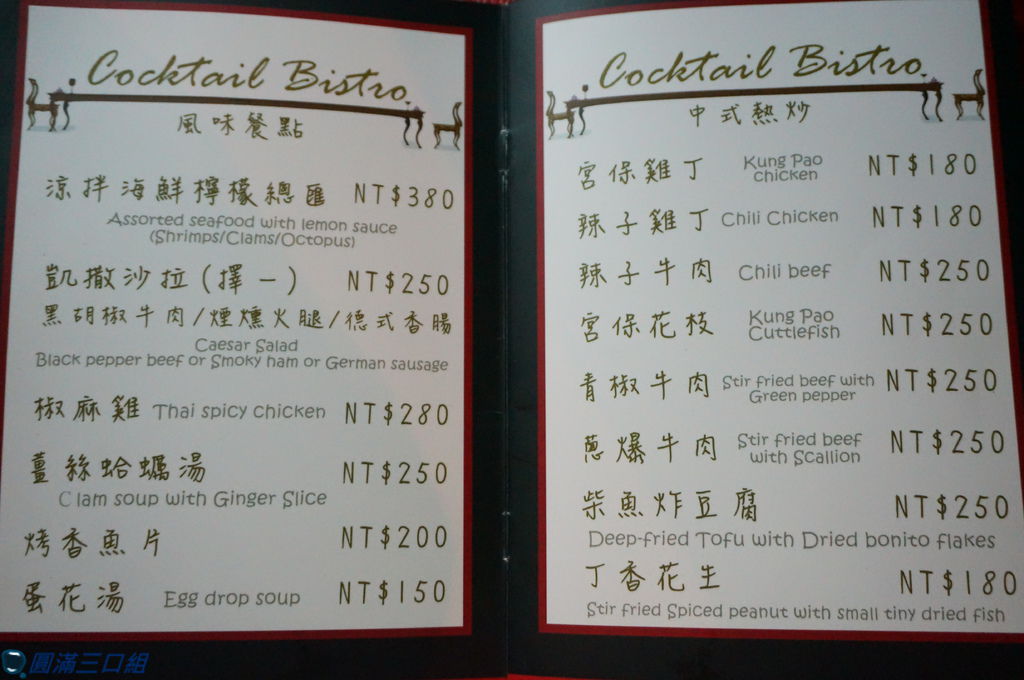 Cocktail Bistro
風味餐點
涼拌海鮮檸檬總匯 NT$380
Assorted seafood with lemon sauce
(Shrimps/Clams/Octopus)
凱撒沙拉(擇一) NT$250
黑胡椒牛肉/煙燻火腿/德式香腸
Caesar Salad
Black pepper beef or Smoky ham or German sausage
椒麻雞 Thai spicy chicken NT$280
薑絲蛤蠣湯 NT$250
Clam soup with Ginger Slice
烤香魚片 NT$200
蛋花湯 Egg drop soup NT$150
Cocktail Bistro
中式熱炒
宮保雞丁 Kung Pao chicken NT$180
辣子雞丁 Chili Chicken NT$180
辣子牛肉 Chili beef NT$250
宮保花枝 Kung Pao Cuttlefish NT$250
青椒牛肉 Stir fried beef with Green pepper NT$250
蔥爆牛肉 Stir fried beef with Scallion NT$250
柴魚炸豆腐 NT$250
Deep-fried Tofu with Dried bonito flakes
丁香花生 NT$180
Stir fried Spiced peanut with small tiny dried fish
圓滿三口組